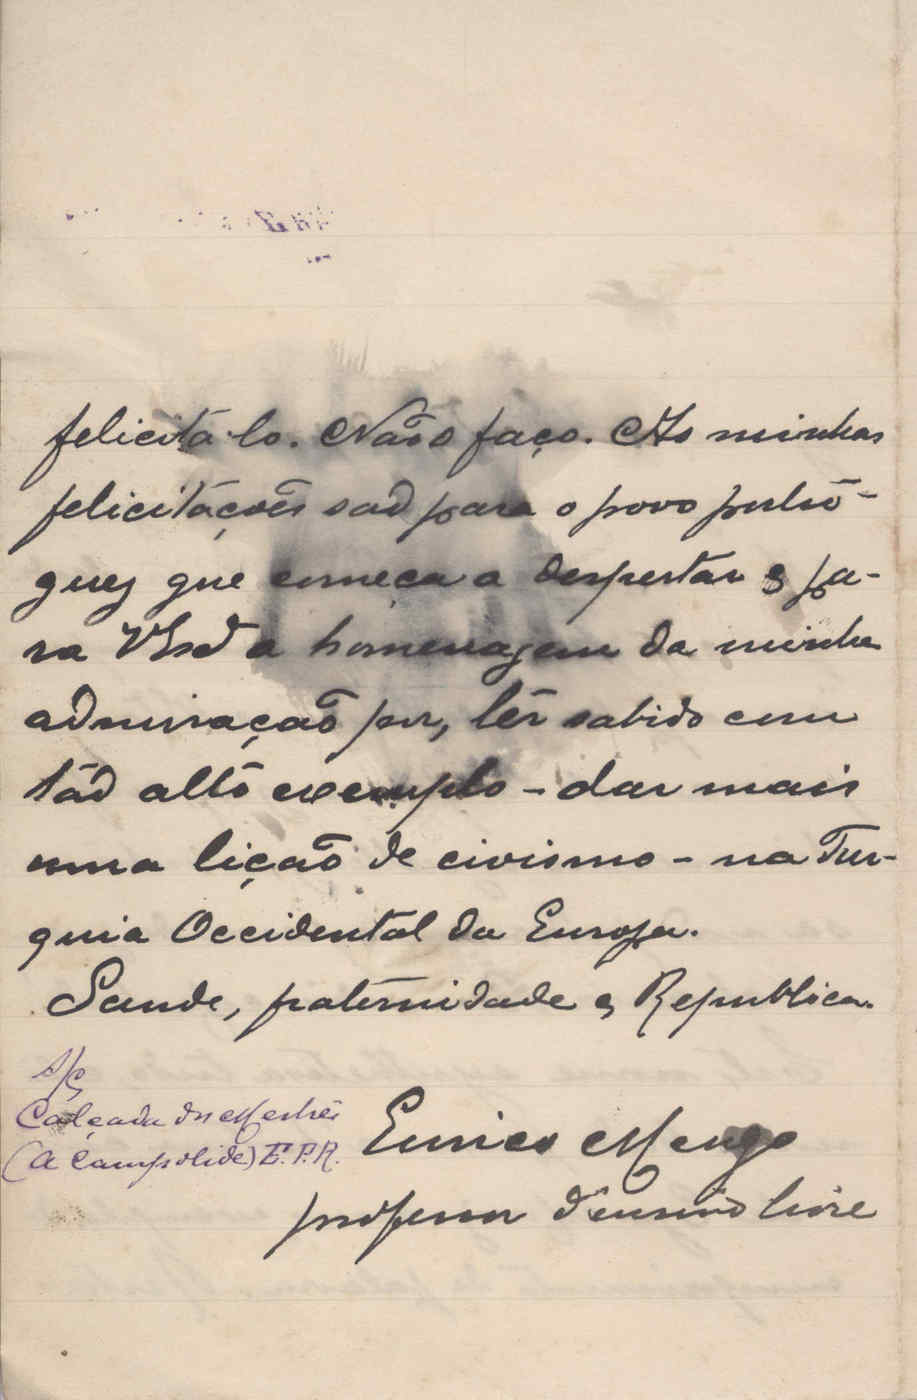 felicitá-lo. Não o faço. As minhas
felicitações são para o povo portu-
guez que começa a despertar e pa-
ra V. Ex.ª a homenagem da minha
admiração por, têr sabido com
tão alto exemplo - dar mais
uma lição de civismo - na Tur-
quia Occidental da Europa.
Saude, fraternidade e Republica.
S/C
Calçada dos Mestres
(a Campolide) E.P.R.
Eurico Mengo
professor d'ensino livre